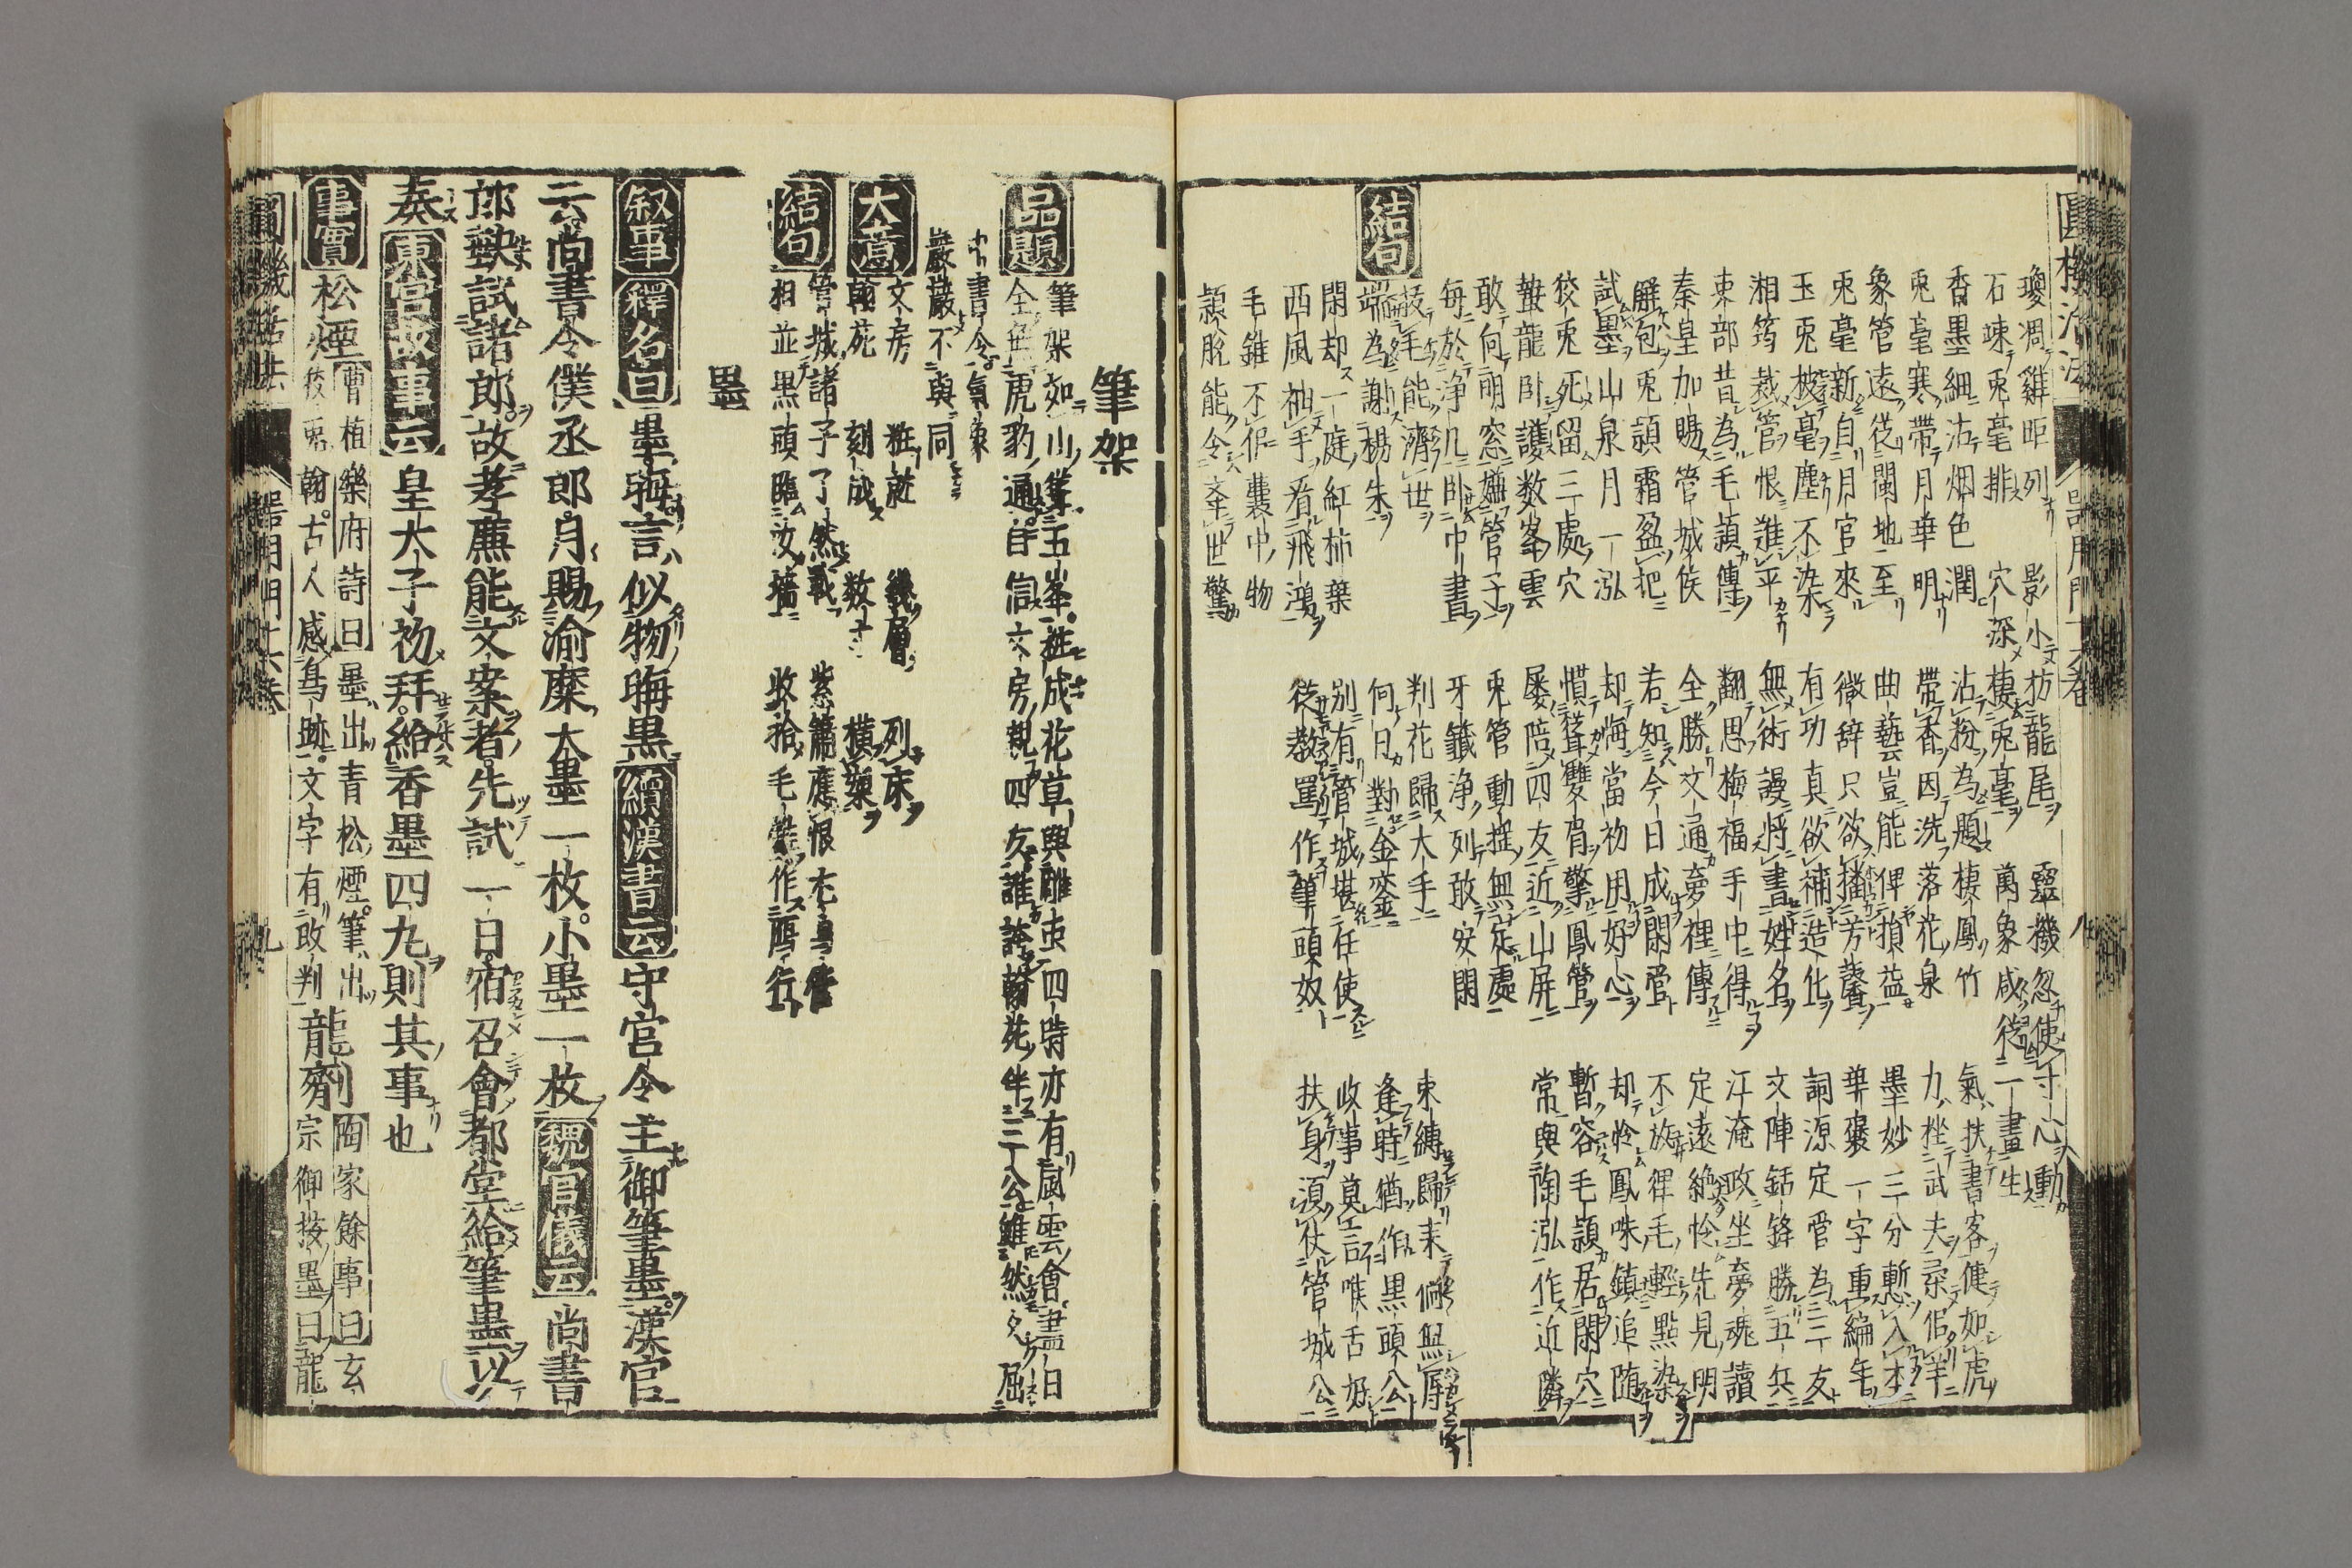 圓機活法 器用門十六卷 八
瓊凋雞距列 影小枋龍尾 靈機忽使寸心動
石竦兎毫排 穴深棲兎毫 萬象咸從一畫生
香墨細沾烟色潤 沾粉為題棲鳳竹 氣扶書客健如虎
兎毫寒帶月華明 帶香因洗落花泉 力挫武夫柔似羊
象管遠從閩地至 曲藝豈能俾損益 墨妙三分慙入木
兎毫新自月宮來 微辞只欲播芳馨 華褒一字重編年
玉兎披毫塵不染 有功真欲補造化 詞源定管為三友
湘筠裁管恨難平 無術謾將書姓名 文陣銛鋒勝五兵
東部昔為毛頴傳 翻思梅福手中得 江淹政坐夢魂讀
秦皇加賜管城侯 全勝文通夢裡傳 定遠絶怜先見明
解包兎頴霜盈把 若知今日成閑管 不放狸毛輕點染
試墨山泉月一泓 却悔當初用好心 却怜鳳咮鎮追随
狡兎死留三處穴 慣葺雙肩擎鳳管 暫容毛頴居閑穴
蟄龍卧護数峯雲 屡陪四友近山屏 常與陶泓作近隣
敢向明窓嫌管子 兎管動揺無定處
毎於浄几卧中書 牙籤浄列敢安閑
結句
拔毛能濟世 判花歸大手 束縛歸来偏無辱
端為謝楊朱 何日對金鑾 逢時猶作黒頭公
閑却一庭紅柿葉 別有管城堪任使 收事莫言喉舌好
西風袖手看飛鴻 從教罵作筆頭奴 扶身須仗管城公
毛錐不但囊中物
頴脱能令挙世驚
筆架
品題
筆架如山筆五峯粧成花草與雕虫四時亦有風雲會盡日
全無虎豹通自信文房親四友誰誇翰苑伴三公雖然久屈
中書令氣象
巖巖不與同
大意
文房粧就 幾層列床
翰苑刻成 数寸横案
結句
管城諸子了然戰 紫簫應恨右
相並黒頭臨汝 收拾毛錐作鴈行
墨
叙事 釋名曰 墨晦言似物晦黒 續漢書云 守宮令主御筆墨漢官
云尚書令僕丞郎月賜渝糜大墨一枚小墨一枚 魏官儀云 尚書
郎缺試諸郎故孝廉能文案者先試一日宿召會都堂給筆墨以
奏 東宮故事云 皇大子初拜給香墨四九則其事也
事實 松煙 曹植樂府詩曰墨出青松煙筆出
狡兎翰古人感鳥跡文字有改判 龍劑 陶家餘事曰玄
宗御按墨曰龍
圓機活法 器用門十六卷 九